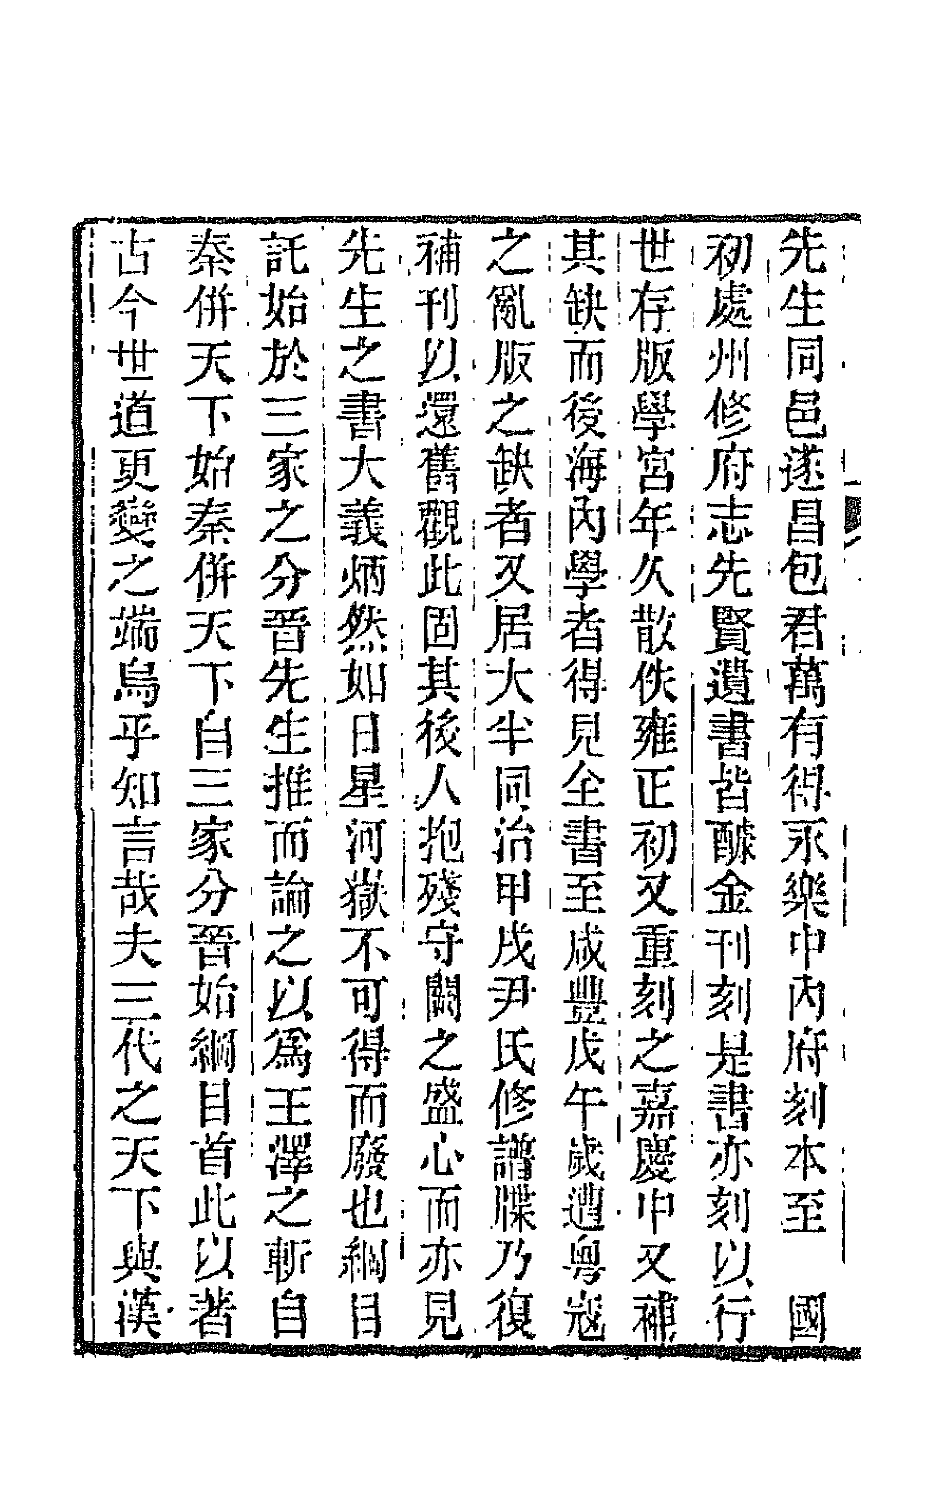 先生同邑遂昌包君萬有得永樂中內府刻本至　國
初處州修府志先賢遺書皆醵金刊刻是書亦刻以行
世存版學宮年久散佚雍正初又重刻之嘉慶中又補
其缺而後海內學者得見全書至咸豐戊午歲遭粤寇
之亂版之缺者又居大半同治甲戌尹氏修譜牒乃復
補刊以還舊觀此固其後人抱殘守闕之盛心而亦見
先生之書大義炳然如日星河嶽不可得而廢也綱目
託始於三家之分晉先生推而論之以爲王澤之斬自
秦併天下始秦併天下自三家分晉始綱目首此以著
古今世道更變之端烏乎知言哉夫三代之天下與漢